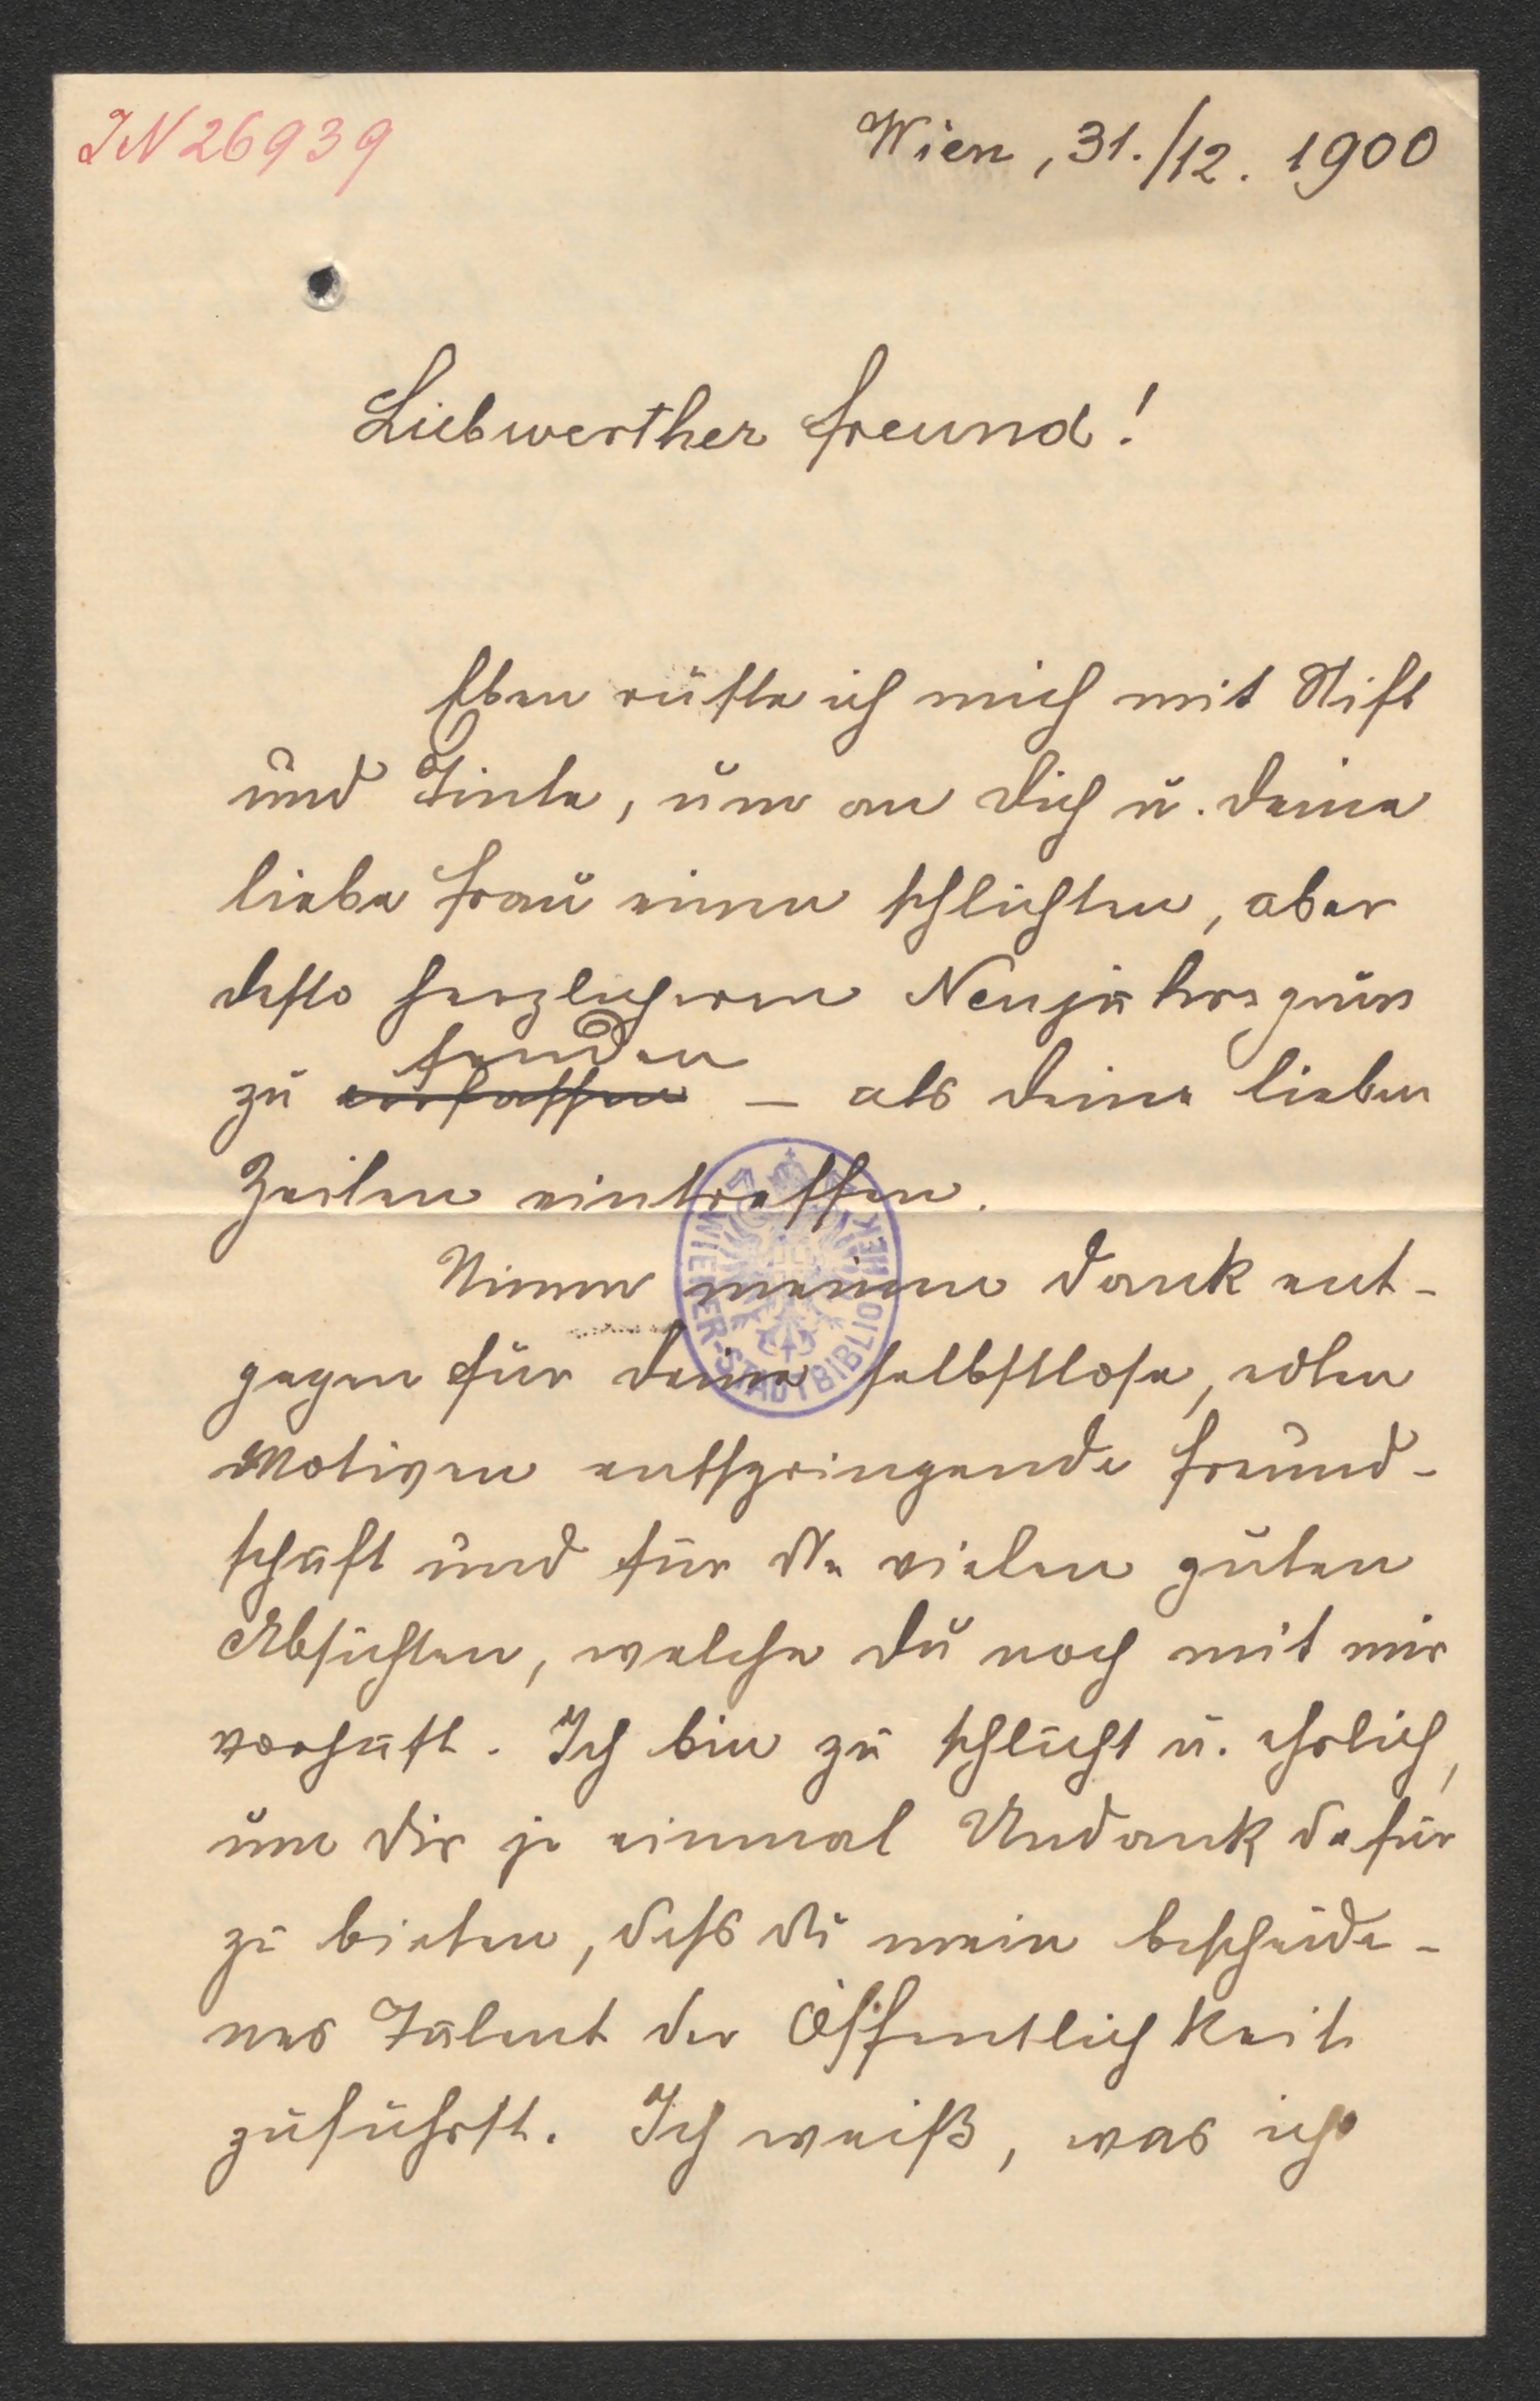 IN 26939
Wien, 31./12. 1900
Liebwerther Freund!
Eben rüste ich mich mit Stift
und Tinte, um an Dich u. Deine
liebe Frau einen schlichten, aber
desto herzlicheren Neujahrsgruss
senden
zu verfassen – als Deine lieben
Zeilen eintreffen.
WIENER-STADTBIBLIOTHEK
Nimm meinen Dank ent-
gegen für Deine selbstlose, edlen
Motiven entspringende Freund-
schaft und für die vielen guten
Absichten, welche Du noch mit mir
vorhast. Ich bin zu schlicht u. ehrlich,
um Dir je einmal Undank dafür
zu bieten, dass Du mein bescheide-
nes Talent der Öffentlichkeit
zuführst. Ich weiß, was ich